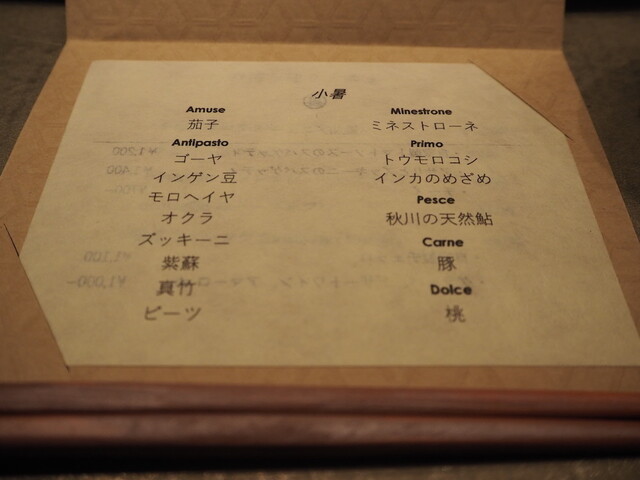 小暑
Amuse
茄子
Antipasto
ゴーヤ
インゲン豆
モロヘイヤ
オクラ
ズッキーニ
紫蘇
真竹
ビーツ
Minestrone
ミネストローネ
Primo
トウモロコシ
インカのめざめ
Pesce
秋川の天然鮎
Carne
豚
Dolce
桃